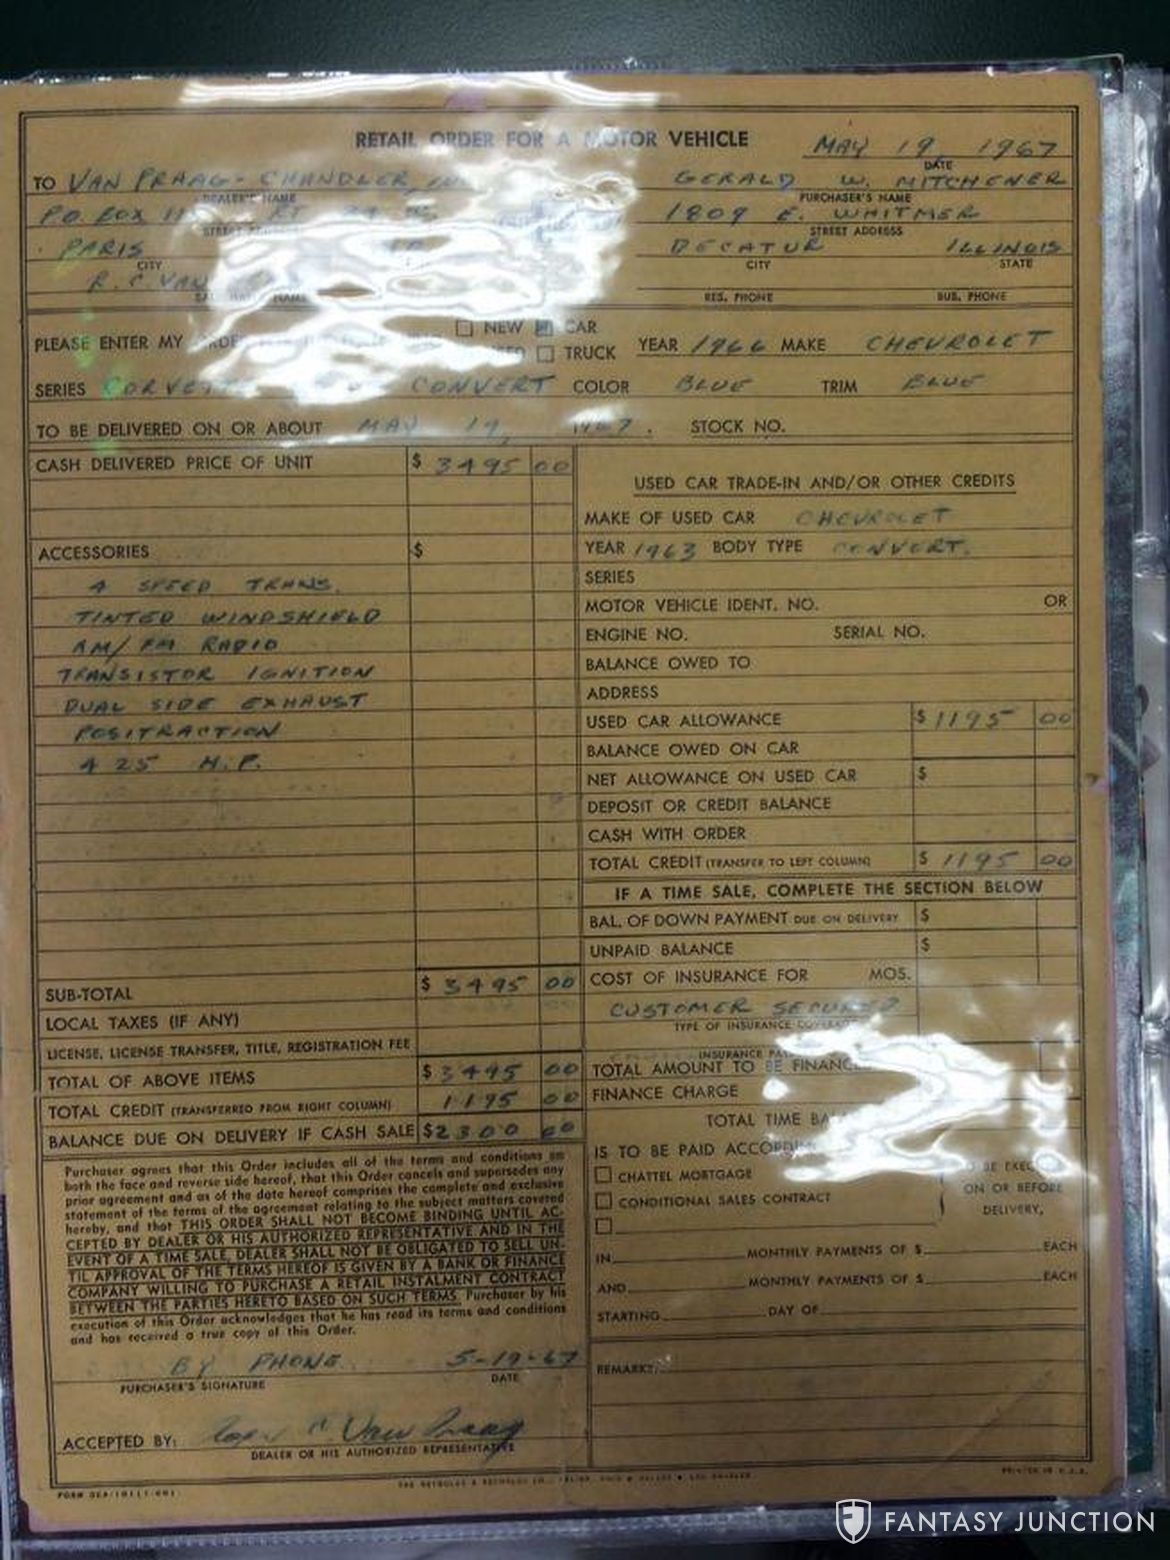 RETAIL ORDER FOR A MOTOR VEHICLE
MAY 19, 1967
DATE
TO VAN PRAAG-CHANDLER,
DEALER'S NAME
GERALD W. MITCHENER
PURCHASER'S NAME
P.O. BOX
STREET
1809 E. WHITMER
STREET ADDRESS
PARIS
CITY
DECATUR ILLINOIS
CITY STATE
R.C. VAN
NAME
RES. PHONE BUS. PHONE
PLEASE ENTER MY ORDER
NEW CAR
TRUCK
YEAR 1966 MAKE CHEVROLET
SERIES CORVETTE CONVERT COLOR BLUE TRIM BLUE
TO BE DELIVERED ON OR ABOUT MAY 19, 1967. STOCK NO.
CASH DELIVERED PRICE OF UNIT $ 3495 00
ACCESSORIES $
4 SPEED TRANS.
TINTED WINDSHIELD
AM/FM RADIO
TRANSISTOR IGNITION
DUAL SIDE EXHAUST
POSITRACTION
425 H.P.
SUB-TOTAL $ 3495 00
LOCAL TAXES (IF ANY)
LICENSE, LICENSE TRANSFER, TITLE, REGISTRATION FEE
TOTAL OF ABOVE ITEMS $ 3495 00
TOTAL CREDIT (TRANSFERRED FROM RIGHT COLUMN) 1195 00
BALANCE DUE ON DELIVERY IF CASH SALE $2300 00
Purchaser agrees that this Order includes all of the terms and conditions on
both the face and reverse side hereof, that this Order cancels and supersedes any
prior agreement and as of the date hereof comprises the complete and exclusive
statement of the terms of the agreement relating to the subject matters covered
hereby, and that THIS ORDER SHALL NOT BECOME BINDING UNTIL AC-
CEPTED BY DEALER OR HIS AUTHORIZED REPRESENTATIVE AND IN THE
EVENT OF A TIME SALE, DEALER SHALL NOT BE OBLIGATED TO SELL UN-
TIL APPROVAL OF THE TERMS HEREOF IS GIVEN BY A BANK OR FINANCE
COMPANY WILLING TO PURCHASE A RETAIL INSTALMENT CONTRACT
BETWEEN THE PARTIES HERETO BASED ON SUCH TERMS. Purchaser by his
execution of this Order acknowledges that he has read its terms and conditions
and has received a true copy of this Order.
BY PHONE 5-19-67
PURCHASER'S SIGNATURE DATE
ACCEPTED BY: Van Praag
DEALER OR HIS AUTHORIZED REPRESENTATIVE
USED CAR TRADE-IN AND/OR OTHER CREDITS
MAKE OF USED CAR CHEVROLET
YEAR 1963 BODY TYPE CONVERT.
SERIES
MOTOR VEHICLE IDENT. NO. OR
ENGINE NO. SERIAL NO.
BALANCE OWED TO
ADDRESS
USED CAR ALLOWANCE $ 1195 00
BALANCE OWED ON CAR
NET ALLOWANCE ON USED CAR $
DEPOSIT OR CREDIT BALANCE
CASH WITH ORDER
TOTAL CREDIT (TRANSFER TO LEFT COLUMN) $ 1195 00
IF A TIME SALE, COMPLETE THE SECTION BELOW
BAL. OF DOWN PAYMENT DUE ON DELIVERY $
UNPAID BALANCE $
COST OF INSURANCE FOR MOS.
CUSTOMER SECURED
TYPE OF INSURANCE
INSURANCE
TOTAL AMOUNT TO BE FINANCED
FINANCE CHARGE
TOTAL TIME
IS TO BE PAID
CHATTEL MORTGAGE
CONDITIONAL SALES CONTRACT
ON OR BEFORE
DELIVERY,
IN MONTHLY PAYMENTS OF $ EACH
AND MONTHLY PAYMENTS OF $ EACH
STARTING DAY OF
REMARKS:
PRINTED IN U.S.A.
FANTASY JUNCTION